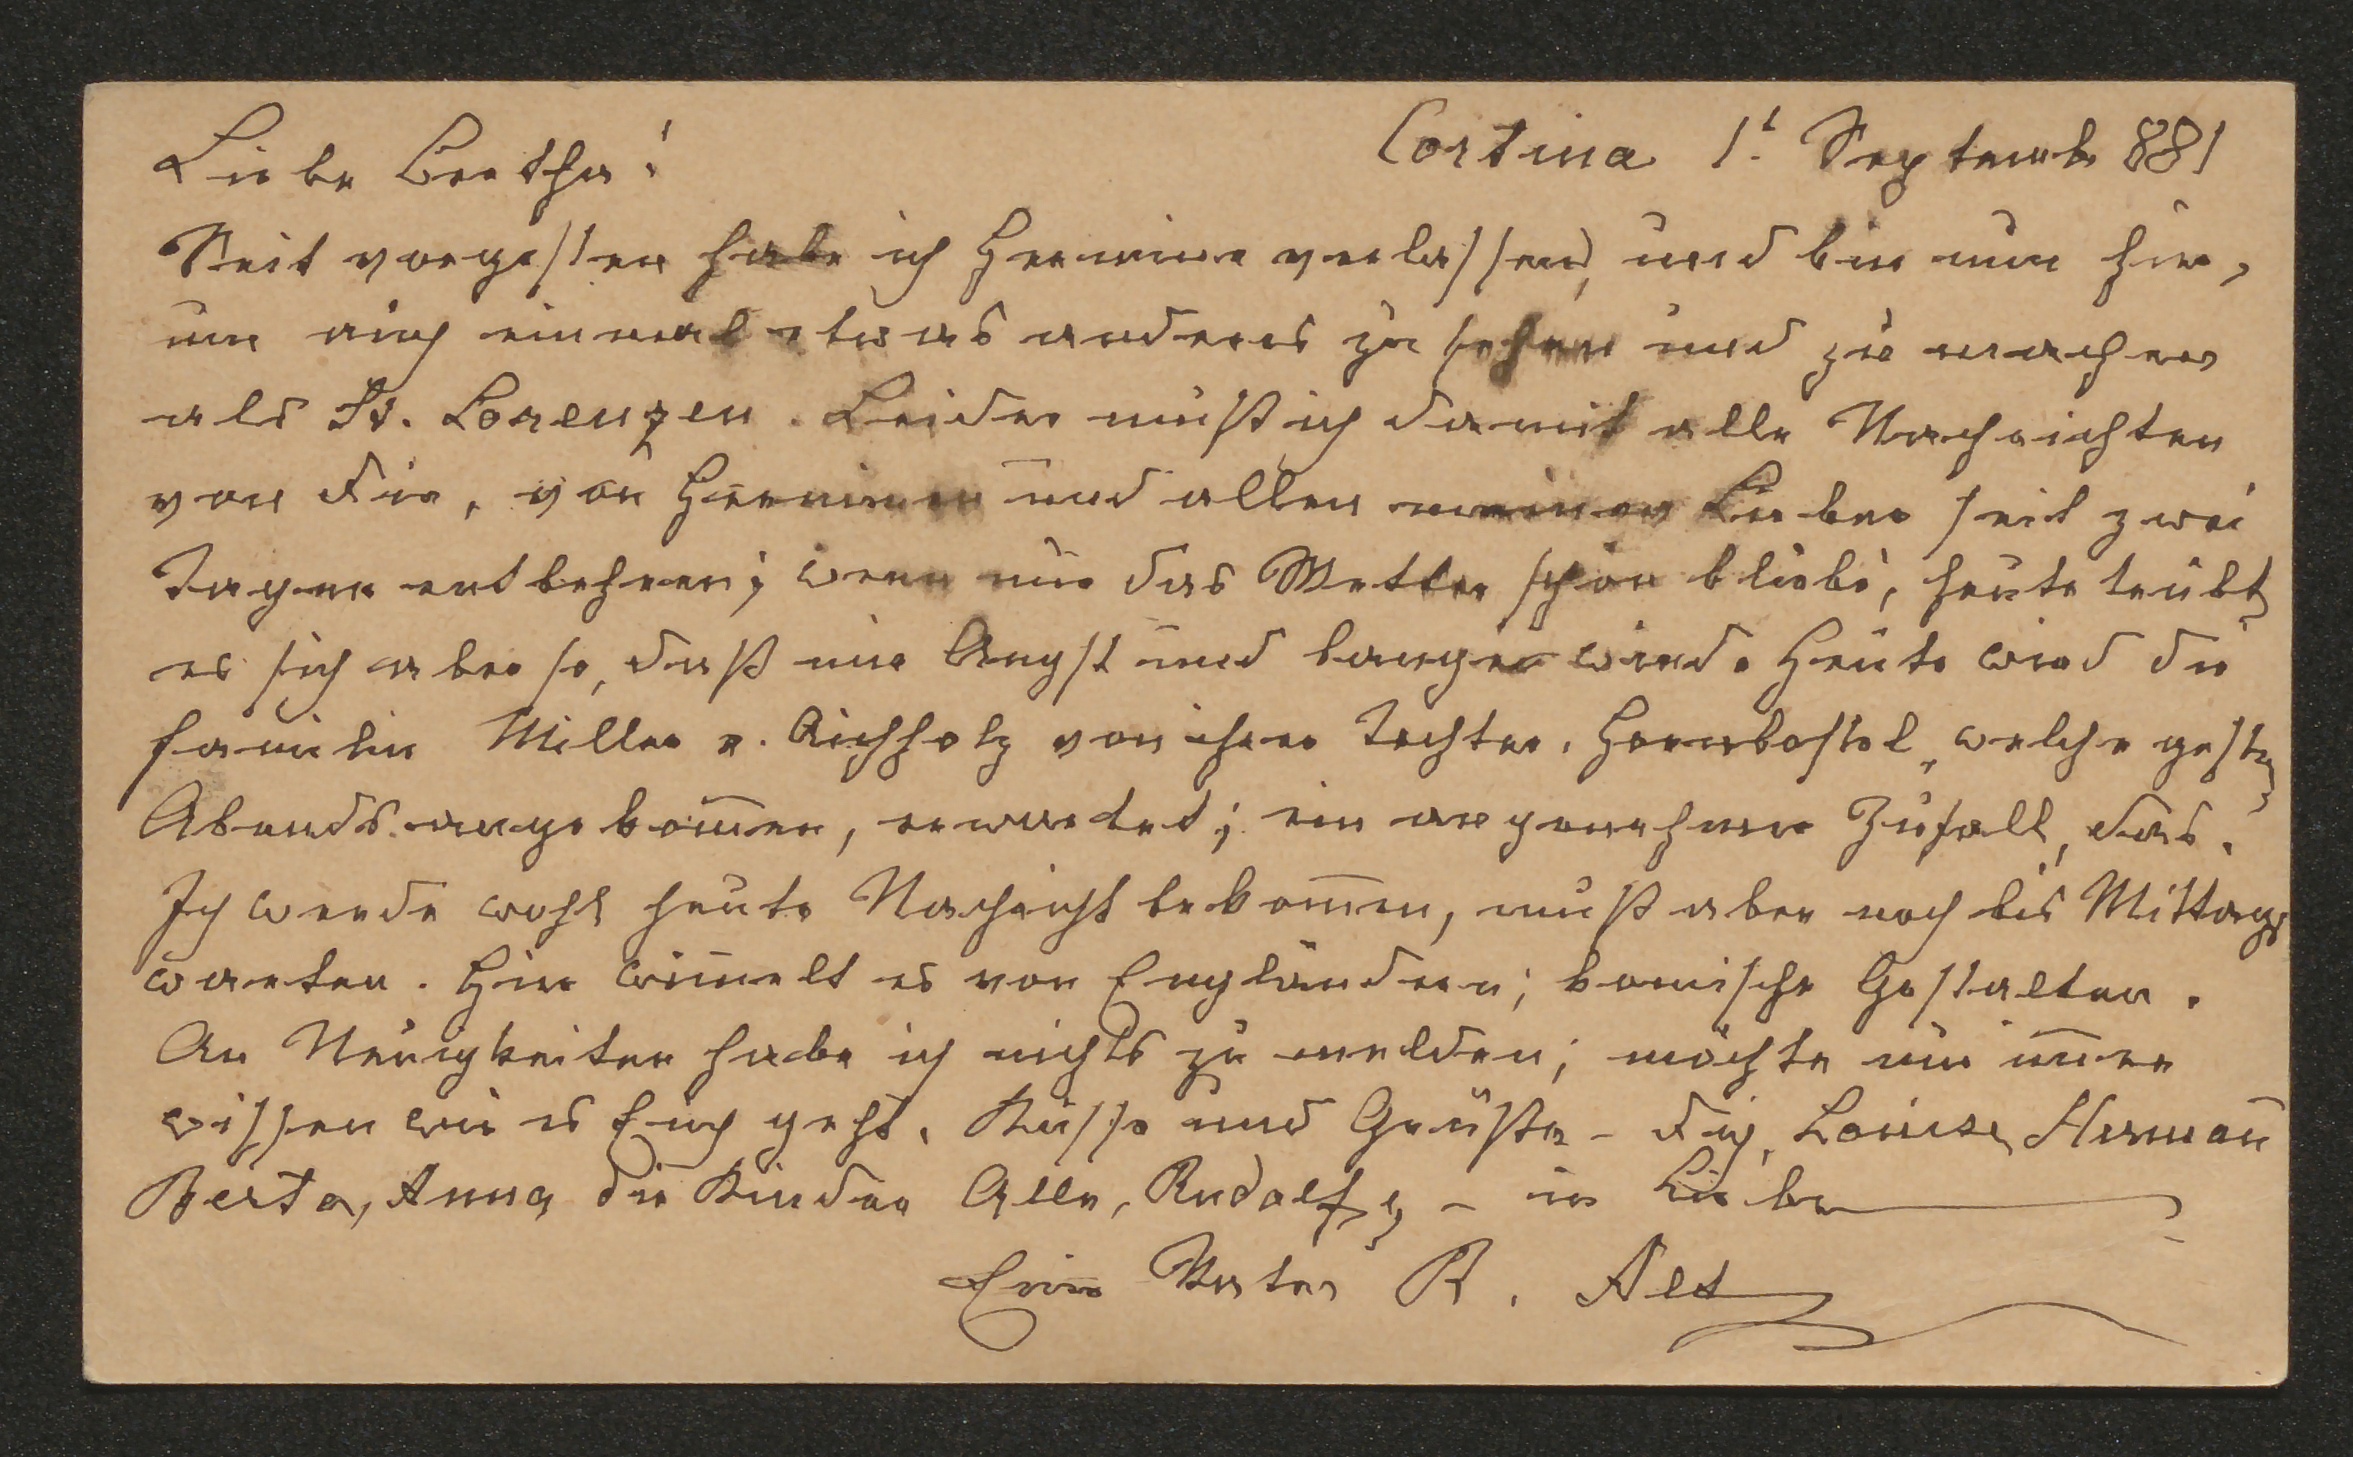 Liebe Bertha! Cortina 1t. Septemb 881
Seit vorgestern habe ich Hermine verlassen, und bin nun hier,
um auch einmal etwas anderes zu sehen und zu machen
als St. Lorenzen. Leider muß ich damit alle Nachrichten
von dir, von Herminen und allen meinen Lieben seit zwei
Tagen entbehren; wenn nur das Wetter schön bliebe, heute trübt
es sich aber so, daß mir Angst und bange wird. Heute wird die
Familie Miller v. Aichholz von ihrer Tochter, Hornbostel, welche gestern
Abends angekom̅en, erwartet; ein angenehmer Zufall, das.
Ich werde wohl heute Nachricht bekom̅en, muß aber noch bis Mittags
warten. Hier wim̅elt es von Engländern; komische Gestalten.
An Neuigkeiten habe ich nichts zu melden; möchte nur im̅er
wissen wie es Euch geht. Küsse und Grüße - dich, Louise, Herman̅
Berta, Anna, die Kinder Alle, Rudolf, - in Liebe
Euer Vater R. Alt